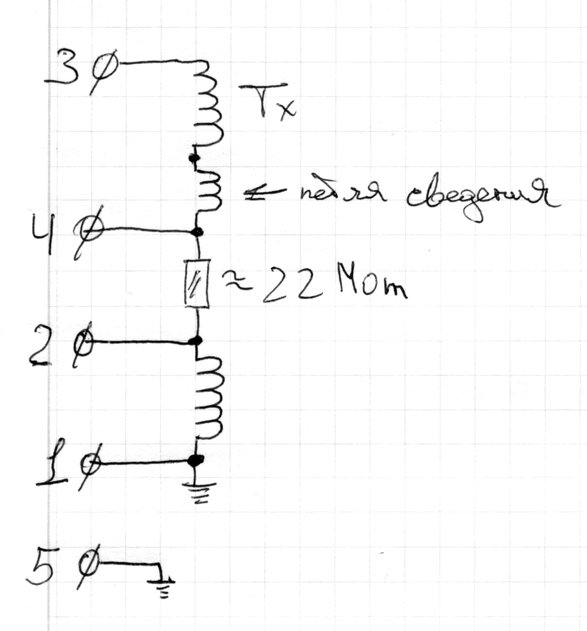 3
Tx
← петля сведения
4
≈ 22 Мом
2
1
5